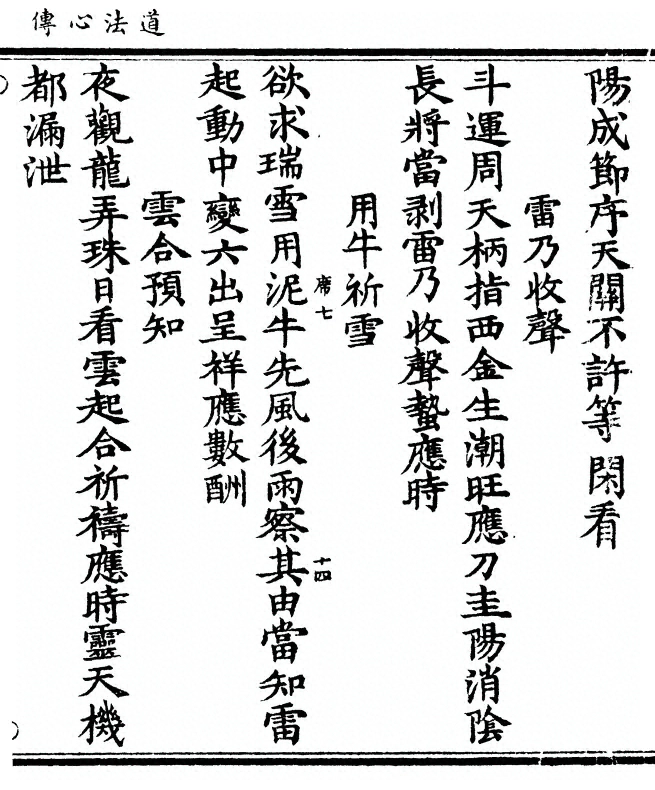 道法心傳
陽成節序天關不許等閑看
雷乃收聲
斗運周天柄指西金生潮旺應刀圭陽消陰
長將當剥雷乃收聲蟄應時
用牛祈雪
席七
十四
欲求瑞雪用泥牛先風後雨察其由當知雷
起動中變六出呈祥應數酬
雲合預知
夜觀龍弄珠日看雲起合祈禱應時靈天機
都漏泄